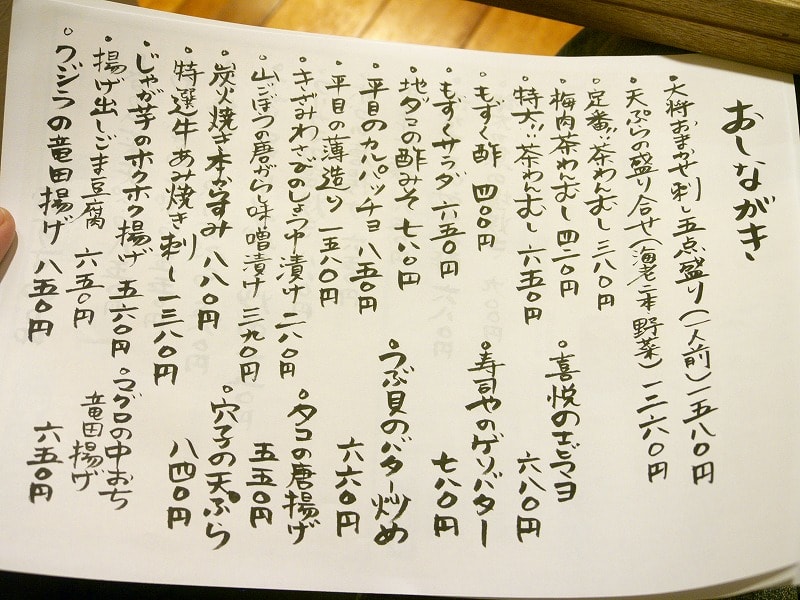 おしながき
・大将おまかせ刺し五点盛り(一人前)一五八〇円
・天ぷらの盛り合せ(海老二本野菜)一二六〇円
・定番!!茶わんむし 三八〇円
・梅肉茶わんむし 四二〇円
・特大!!茶わんむし 六五〇円
・もずく酢 四〇〇円
・もずくサラダ 六五〇円
・地ダコの酢みそ 七八〇円
・平目のカルパッチョ 八五〇円
・平目の薄造り 一五八〇円
・きざみわさびのしょうゆ漬け 二八〇円
・山ごぼうの唐がらし味噌漬け 三九〇円
・炭火焼き本からすみ 八八〇円
・特選牛あみ焼き刺し 一三八〇円
・じゃが芋のホクホク揚げ 五六〇円
・揚げ出しごま豆腐 六五〇円
・クジラの竜田揚げ 八五〇円
・喜悦のエビマヨ
六八〇円
・寿司やのゲソバター
七八〇円
・うぶ貝のバター炒め
六六〇円
・タコの唐揚げ
五五〇円
・穴子の天ぷら
八四〇円
・マグロの中おち
竜田揚げ
六五〇円